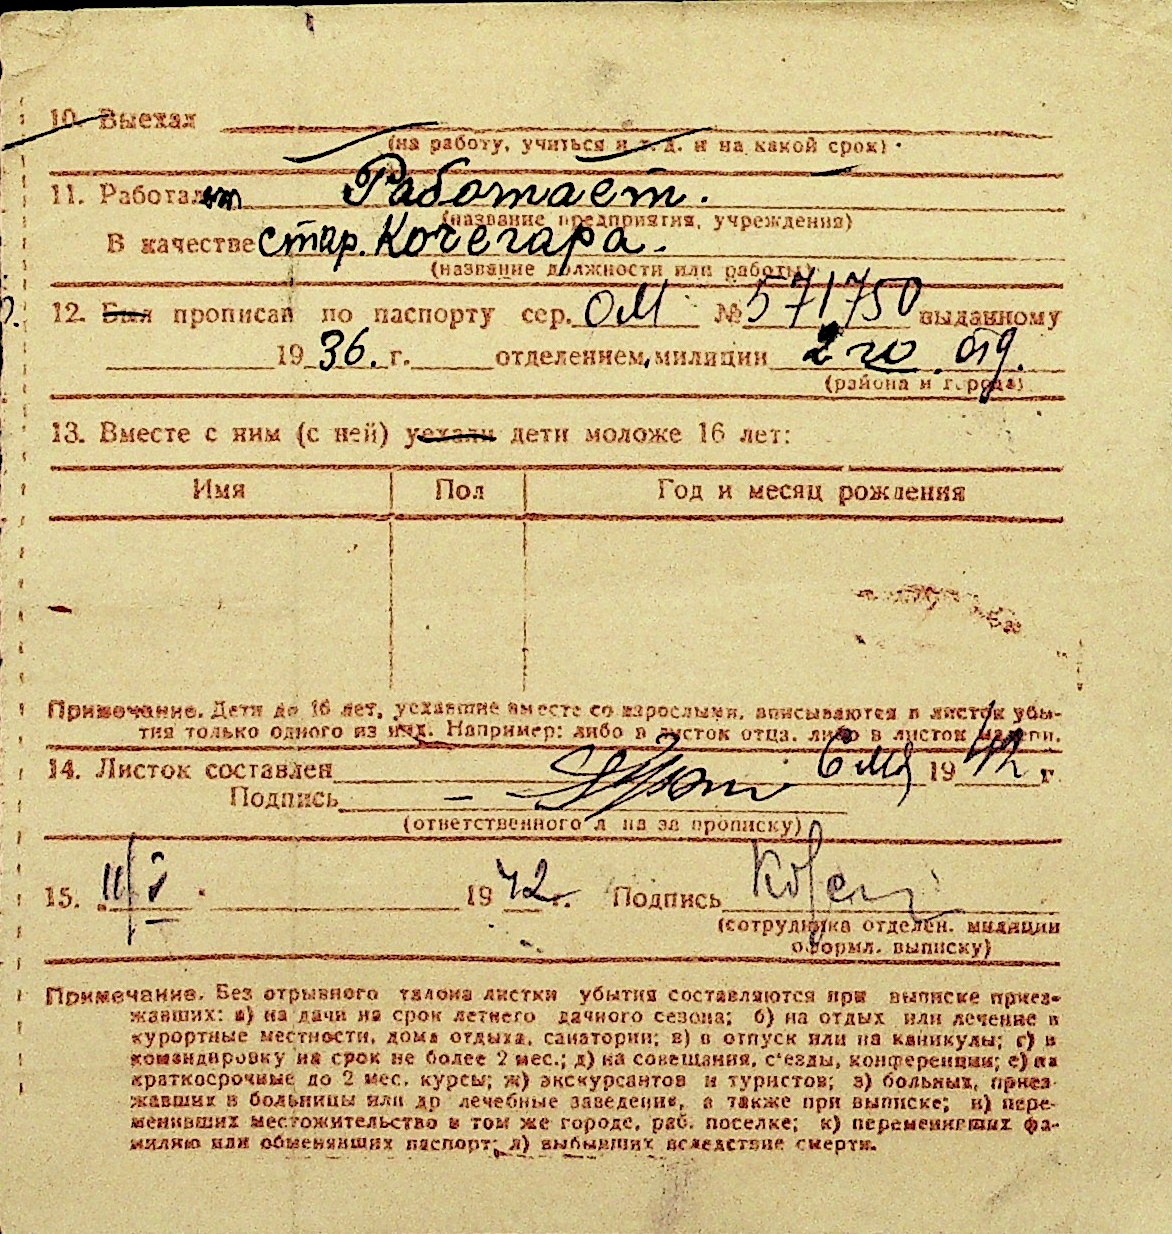 10. Выехал
(на работу, учиться и т. д. и на какой срок)
11. Работает Работает.
(название предприятия, учреждения)
В качестве стар. Кочегара.
(название должности или работы)
12. Был прописан по паспорту сер. ОМ № 571750 выданному
19 36. г. отделением, милиции 2го отд.
(района и города)
13. Вместе с ним (с ней) уехали дети моложе 16 лет:
Имя Пол Год и месяц рождения
Примечание. Дети до 16 лет, уехавшие вместе со взрослыми, вписываются в листок убы-
тия только одного из них. Например: либо в листок отца, либо в листок матери.
14. Листок составлен 6 мя 19 42 г.
Подпись
(ответственного л на за прописку)
15. 11/V 19 42 г. Подпись
(сотрудника отделен. милиции
оформл. выписку)
Примечание. Без отрывного талона листки убытия составляются при выписке приез-
жавших: а) на дачи на срок летнего дачного сезона; б) на отдых или лечение в
курортные местности, дома отдыха, санатории; в) в отпуск или на каникулы; г) в
командировку на срок не более 2 мес.; д) на совещания, с'езды, конференции; е) на
краткосрочные до 2 мес. курсы; ж) экскурсантов и туристов; з) больных, приез-
жавших в больницы или др лечебные заведения, а также при выписке; и) пере-
менивших местожительство в том же городе, раб. поселке; к) переменивших фа-
милию или обменявших паспорт; л) выбывших вследствие смерти.